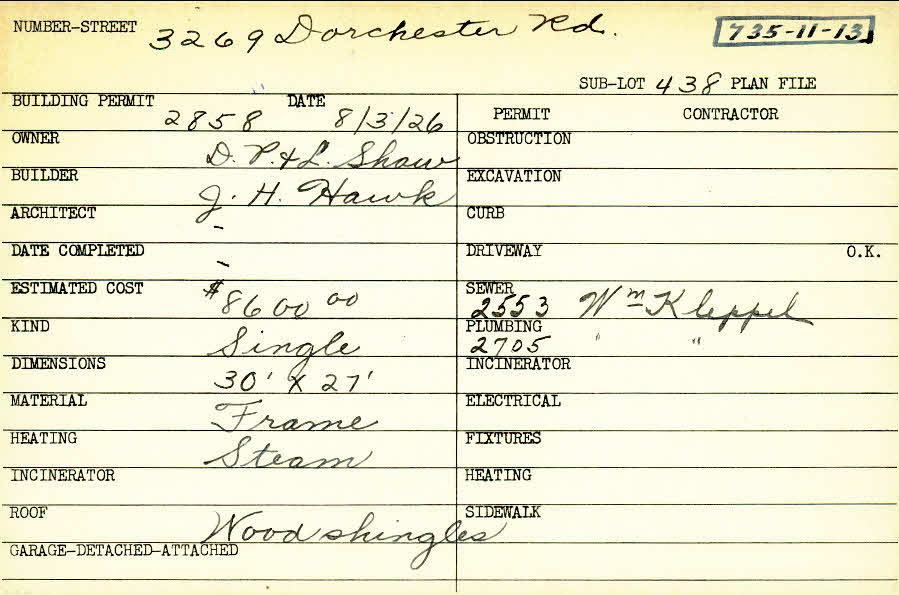 NUMBER-STREET 3269 Dorchester Rd. 735-11-13
SUB-LOT 438 PLAN FILE
BUILDING PERMIT 2858 DATE 8/3/26
OWNER D. P. & L. Shaw
BUILDER J. H. Hawk
ARCHITECT -
DATE COMPLETED -
ESTIMATED COST $8600 00
KIND Single
DIMENSIONS 30' X 27'
MATERIAL Frame
HEATING Steam
INCINERATOR
ROOF Wood shingles
GARAGE-DETACHED-ATTACHED
PERMIT CONTRACTOR
OBSTRUCTION
EXCAVATION
CURB
DRIVEWAY O.K.
SEWER 2553 Wm Kleppel
PLUMBING 2705 " "
INCINERATOR
ELECTRICAL
FIXTURES
HEATING
SIDEWALK